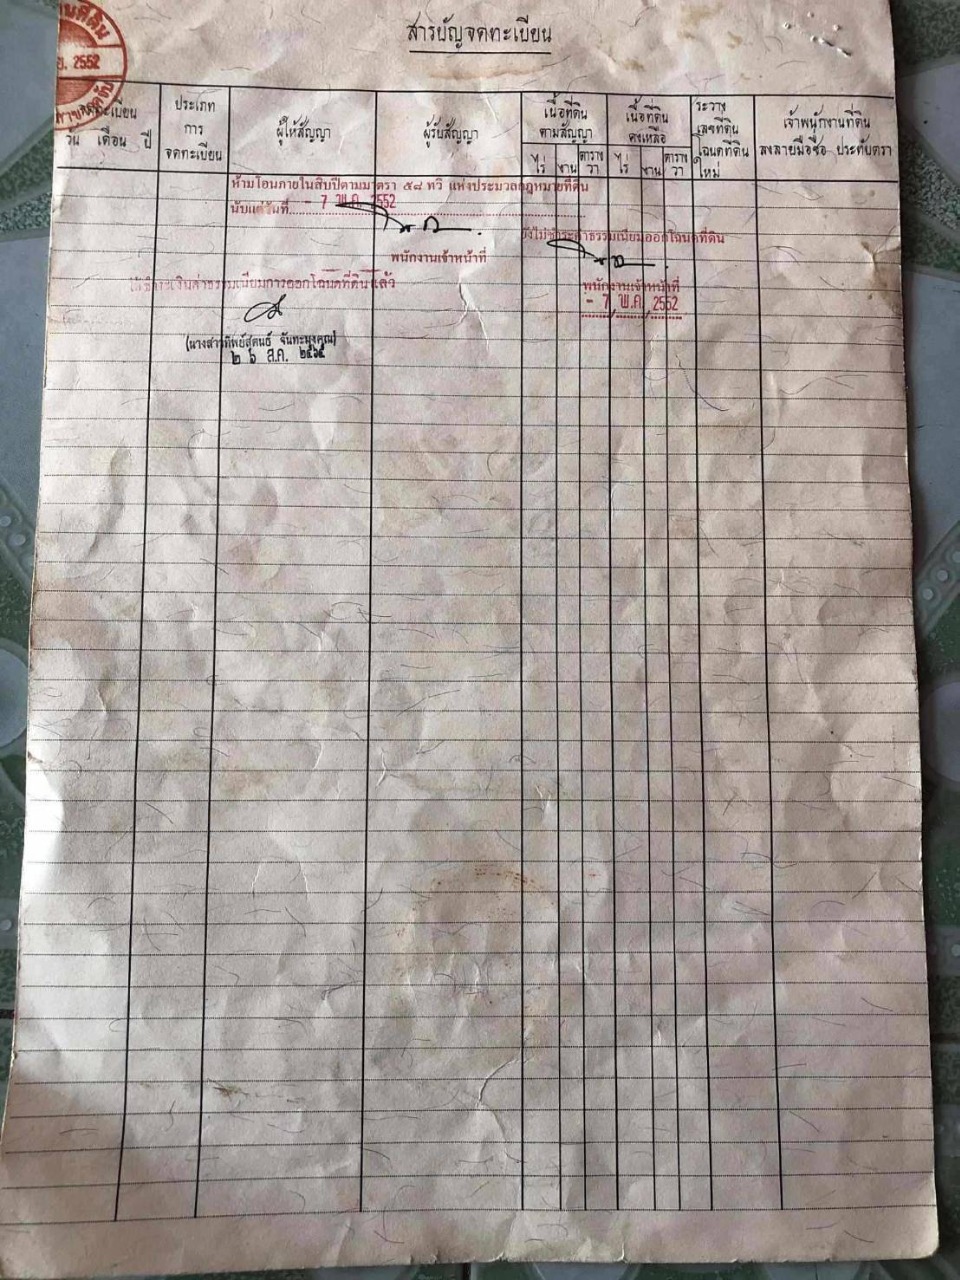 สารบัญจดทะเบียน
2552
จดทะเบียน
วัน เดือน ปี
ประเภท
การ
จดทะเบียน
ผู้ให้สัญญา
ผู้รับสัญญา
เนื้อที่ดิน
ตามสัญญา
ไร่ งาน ตาราง
วา
เนื้อที่ดิน
คงเหลือ
ไร่ งาน ตาราง
วา
ระวาง
เลขที่ดิน
โฉนดที่ดิน
ใหม่
เจ้าพนักงานที่ดิน
ลงลายมือชื่อ ประทับตรา
ห้ามโอนภายในสิบปีตามมาตรา ๕๘ ทวิ แห่งประมวลกฎหมายที่ดิน
นับแต่วันที่ - 7 พ.ค. 2552
พนักงานเจ้าหน้าที่
ยังไม่ชำระค่าธรรมเนียมออกโฉนดที่ดิน
พนักงานเจ้าหน้าที่
- 7 พ.ค. 2552
ได้ชำระเงินค่าธรรมเนียมการออกโฉนดที่ดินแล้ว
๒ ๖ ส.ค. ๒๕๖๔